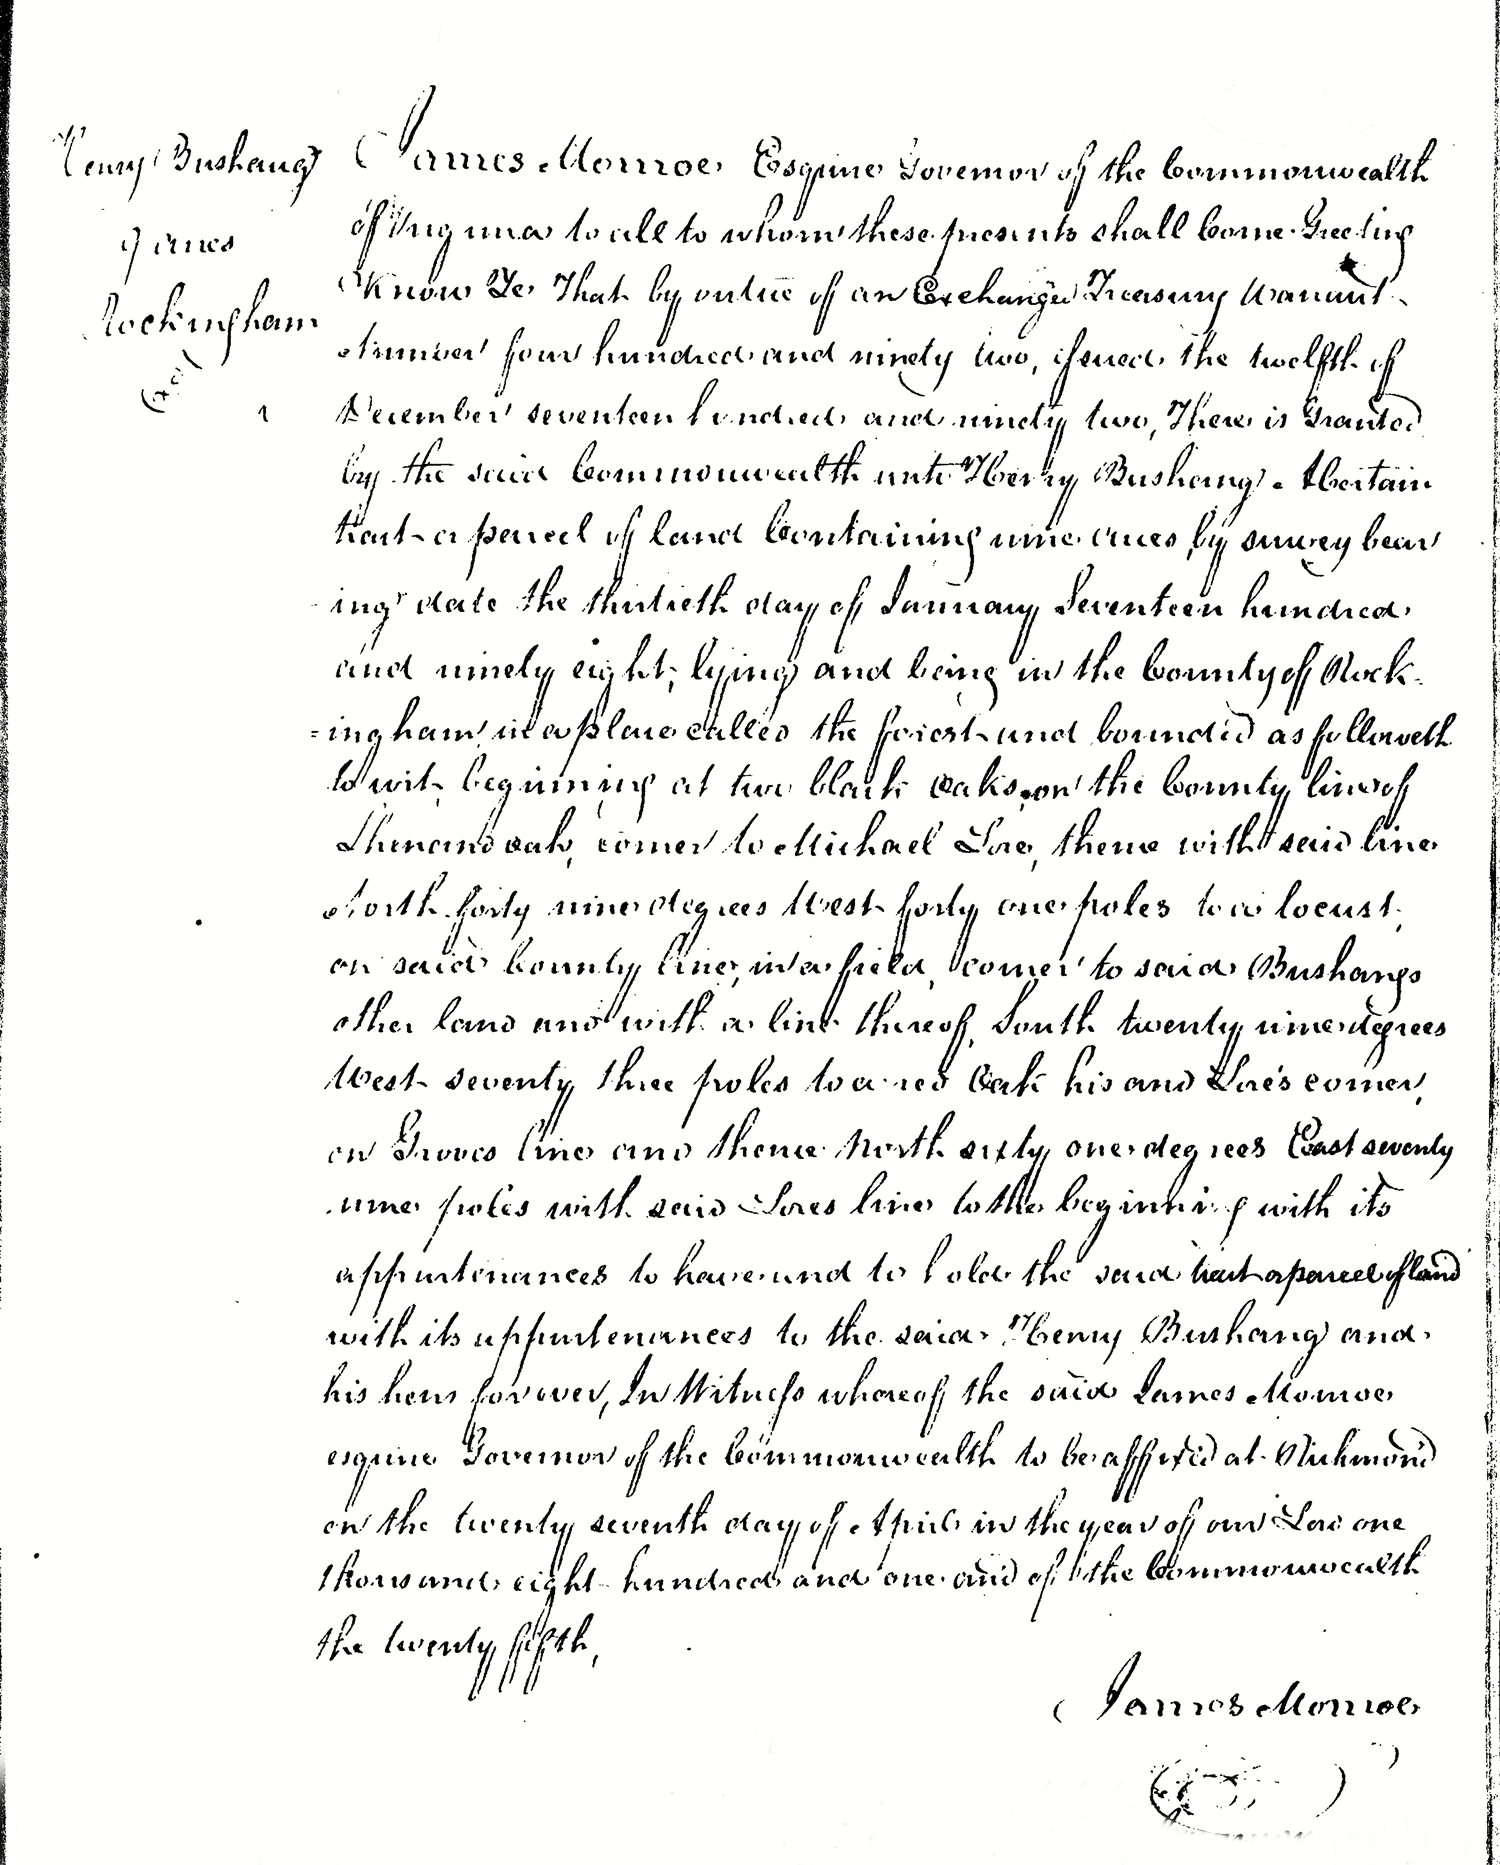 Henry Bushang
9 acres
Rockingham
James Monroe Esquire Governor of the Commonwealth
of Virginia to all to whom these presents shall Come Greeting
Know Ye That by virtue of an Exchange Treasury Warrant
Number four hundred and ninety two, issued the twelfth of
December seventeen hundred and ninety two, There is Granted
by the said Commonwealth unto Henry Bushang a Certain
tract or parcel of land Containing nine acres by survey bear
ing date the thirtieth day of January Seventeen hundred
and ninety eight, lying and being in the County of Rock-
=ingham in a place called the forest and bounded as followeth
to wit, beginning at two black oaks on the County line of
Shenandoah, corner to Michael Lore, thence with said line
North forty nine degrees West forty one poles to a locust
on said County line, in a field, corner to said Bushangs
other land and with a line thereof, South twenty nine degrees
West seventy three poles to a red Oak his and Lore's corner,
on Groves line and thence North sixty one degrees East seventy
nine poles with said Lores line to the beginning with its
appurtenances to have and to hold the said tract or parcel of land
with its appurtenances to the said Henry Bushang and
his heirs forever, In Witness whereof the said James Monroe
esquire Governor of the Commonwealth to be affixed at Richmond
on the twenty seventh day of April in the year of our Lord one
thousand eight hundred and one and of the Commonwealth
the twenty fifth,
James Monroe